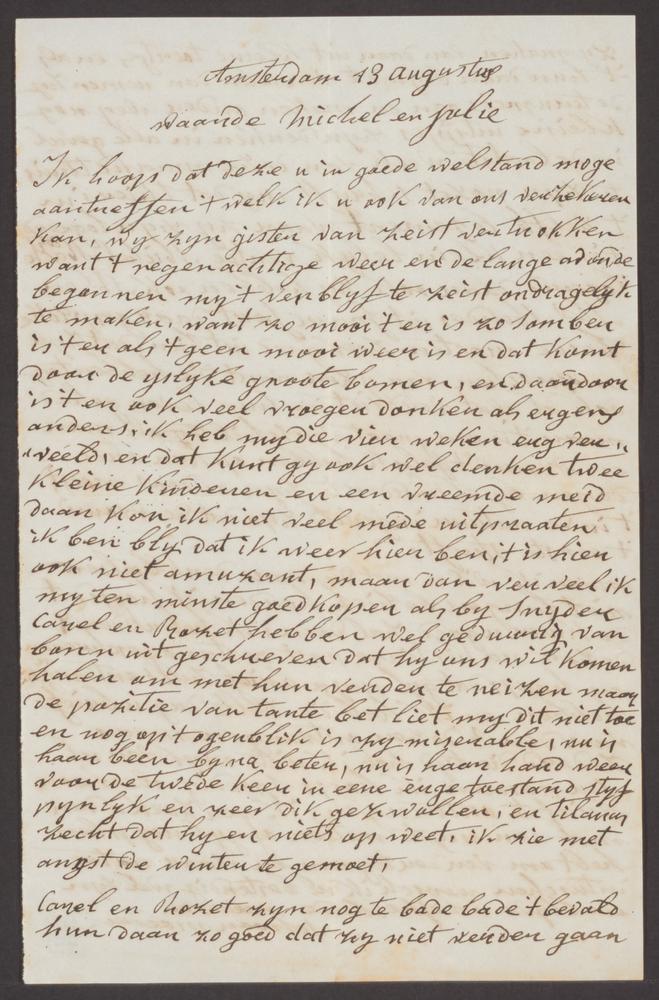 Amsterdam 13 augustus
waarde Michel en Jolie
Ik hoop dat deze u in goede welstand moge
aantreffen 't welk ik u ook van ons verzekeren
kan, wy zyn gister van Zeist vertrokken
want 't regenachtige weer en de lange avonde
begonnen my 't verblyf te Zeist ondragelyk
te maken, want zo mooi 't er is zo somber
is 't er als 't geen mooi weer is en dat komt
door de yslyke groote bomen, en daardoor
is 't er ook veel vroeger donker als ergens
anders, ik heb my die vier weken erg ver„
„veeld, en dat kunt gy ook wel denken twee
kleine kinderen en een vreemde meid
daar kon ik niet veel mede uitpraaten
ik ben bly dat ik weer hier ben, 't is hier
ook niet amuzant, maar dan verveel ik
my ten minste goedkoper als by Snyder
Carel en Rozet hebben wel gedurig van
bonn uit geschreven dat hy ons wil komen
halen om met hun verder te reizen maar
de pozitie van tante bet liet my dit niet toe
en nog op 't ogenblik is zy miserable, nu is
haar been byna beter, nu is haar hand weer
voor de twede keer in eene erge toestand styf
pynlyk en zeer dik gezwollen, en Tilanus
zecht dat hy er niets op weet, ik zie met
angst de winter te gemoet,
Carel en Rozet zyn nog te bade bade 't bevald
hun daar zo goed dat zy niet verder gaan